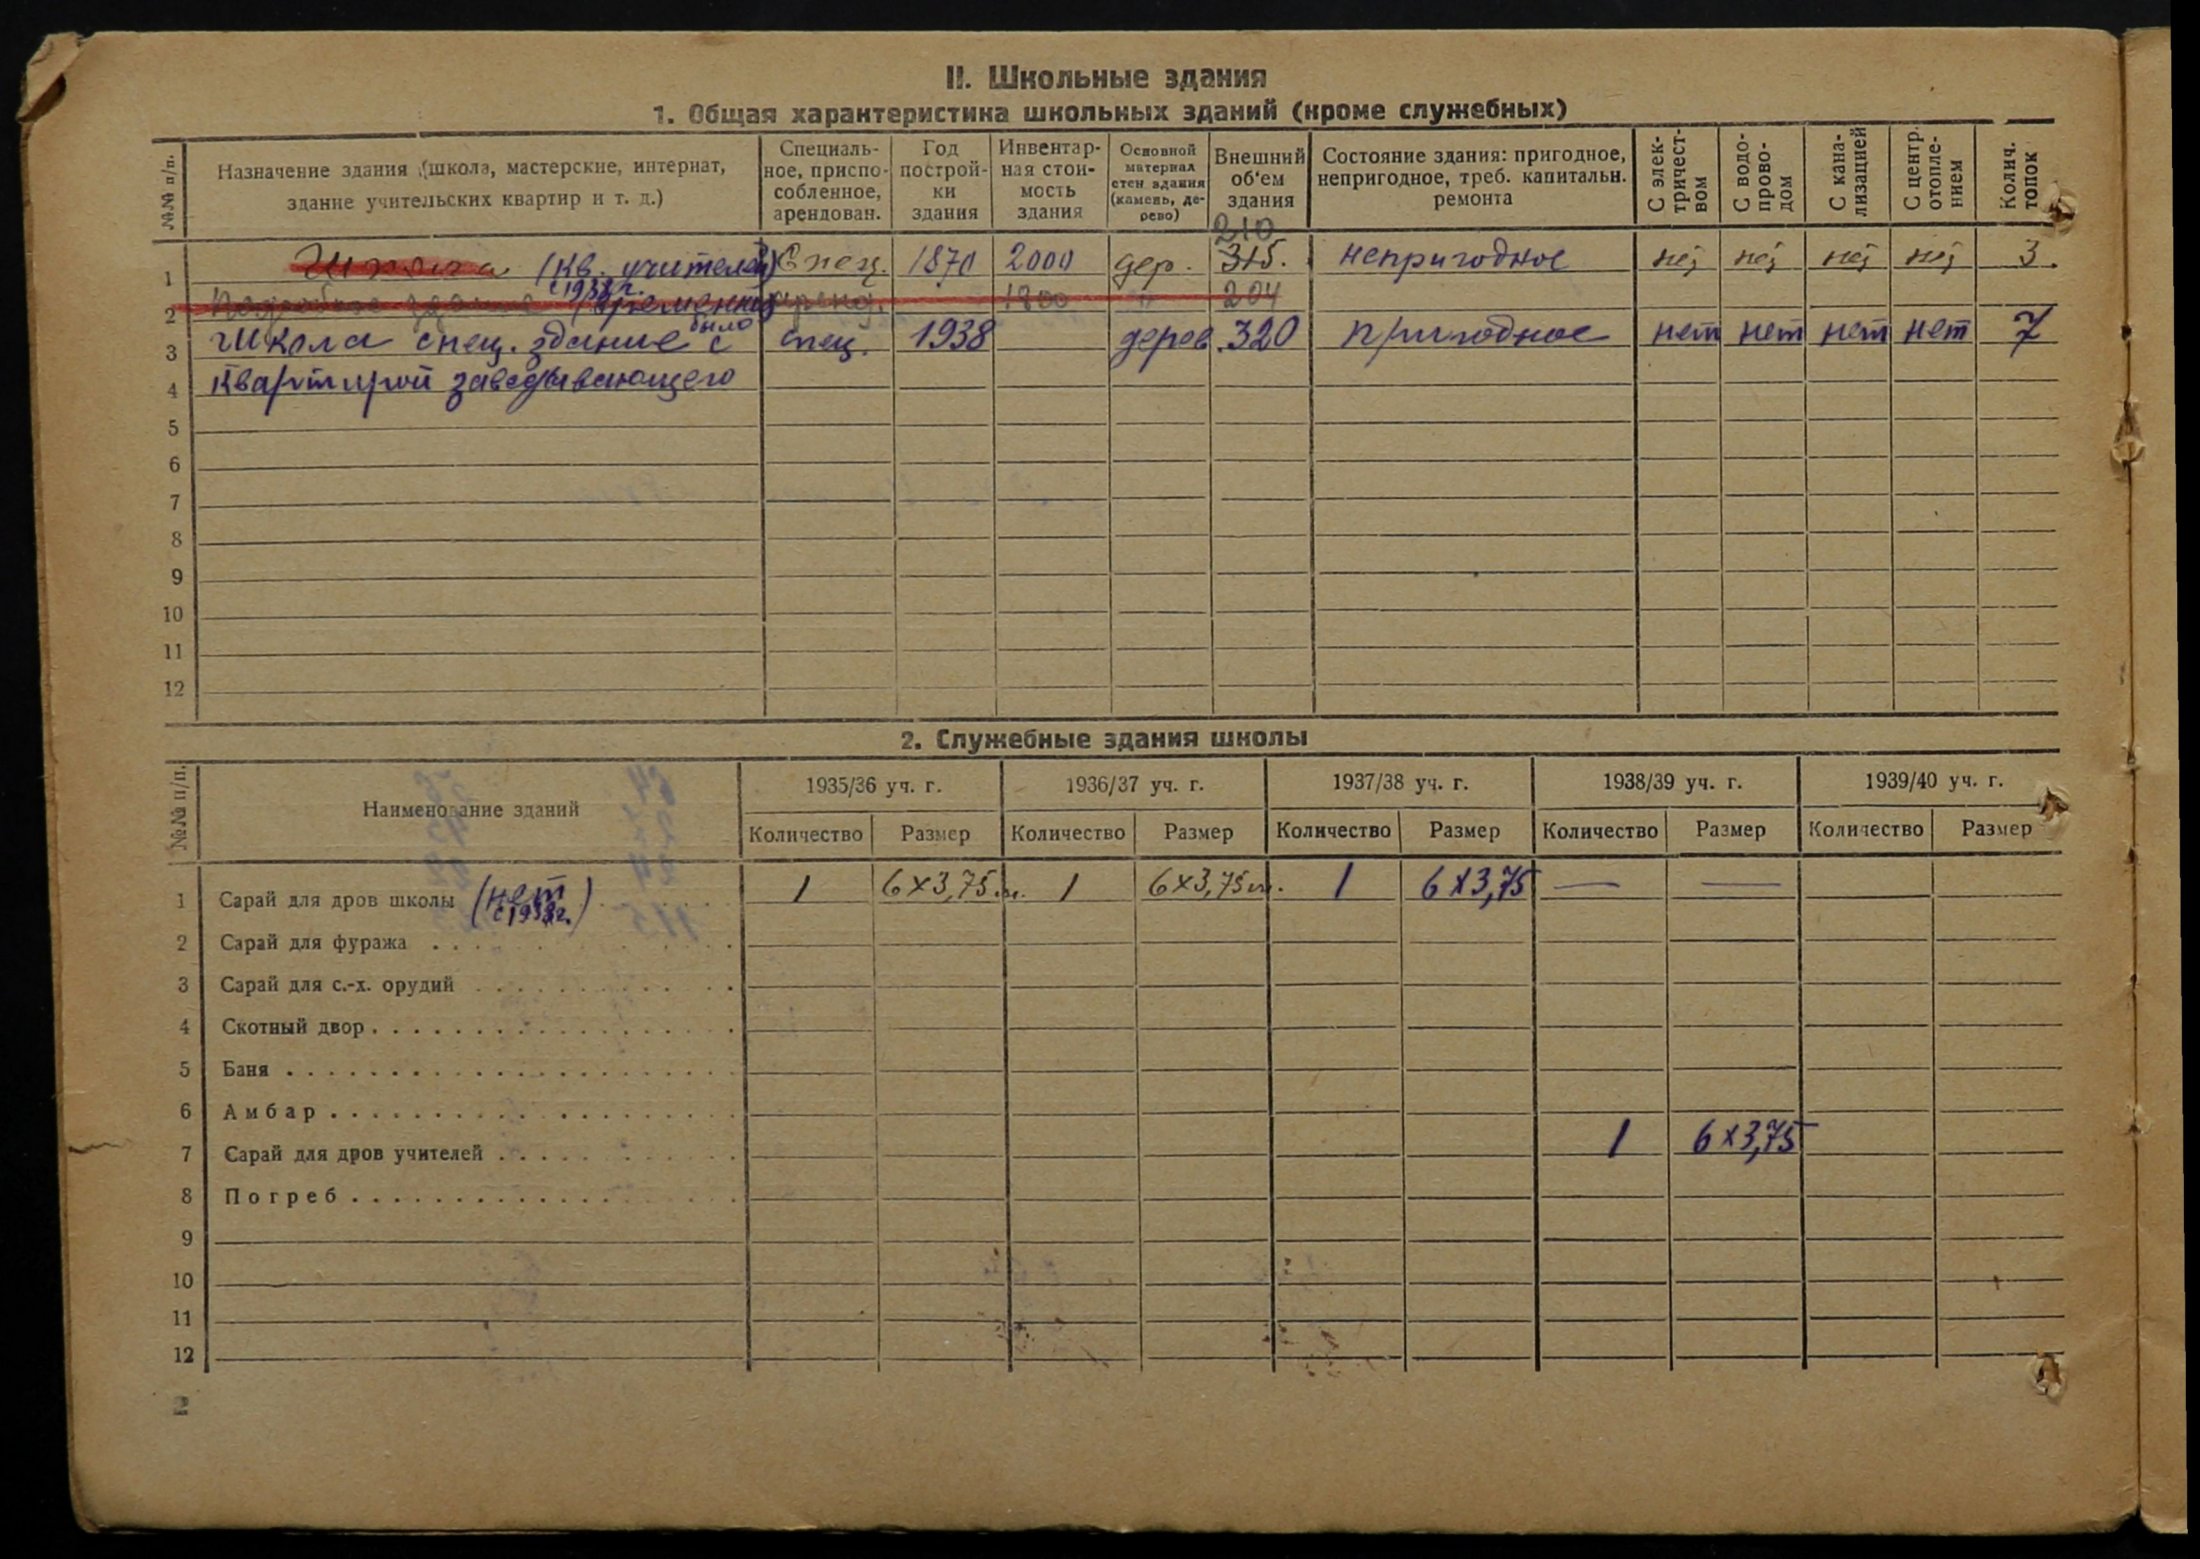 II. Школьные здания
1. Общая характеристика школьных зданий (кроме служебных)
№№ п/п. Назначение здания (школа, мастерские, интернат, здание учительских квартир и т. д.) Специальное, приспособленное, арендован. Год постройки здания Инвентарная стоимость здания Основной материал стен здания (камень, дерево) Внешний об'ем здания Состояние здания: пригодное, непригодное, треб. капитальн. ремонта С электричеством С водопроводом С канализацией С центр. отоплением Колич. топок
210
1 Школа (кв. учителей) Спец. 1870 2000 дер. 315. непригодное нет нет нет нет 3.
с 1938 г.
2 здание временно аренд. 1800 " 204
было
3 Школа спец. здание с спец. 1938 дерев. 320 пригодное нет нет нет нет 7
4 квартирой заведывающего
5
6
7
8
9
10
11
12
2. Служебные здания школы
№№ п/п. Наименование зданий 1935/36 уч. г. 1936/37 уч. г. 1937/38 уч. г. 1938/39 уч. г. 1939/40 уч. г.
Количество Размер Количество Размер Количество Размер Количество Размер Количество Размер
1 Сарай для дров школы (нет с 1938 г.) 1 6×3,75 м. 1 6×3,75 м. 1 6×3,75 — —
2 Сарай для фуража
3 Сарай для с.-х. орудий
4 Скотный двор
5 Баня
6 Амбар
7 Сарай для дров учителей 1 6×3,75
8 Погреб
9
10
11
12
2